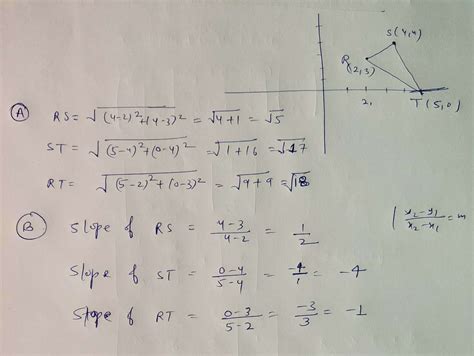 S(4,4)
R(2,3)
2,
T(5,0)
(A) RS = √(4-2)²+(4-3)² = √4+1 = √5
ST = √(5-4)²+(0-4)² = √1+16 = √17
RT = √(5-2)²+(0-3)² = √9+9 = √18
(B) Slope of RS = 4-3/4-2 = 1/2
| y₂-y₁/x₂-x₁ = m
Slope of ST = 0-4/5-4 = -4/1 = -4
Slope of RT = 0-3/5-2 = -3/3 = -1